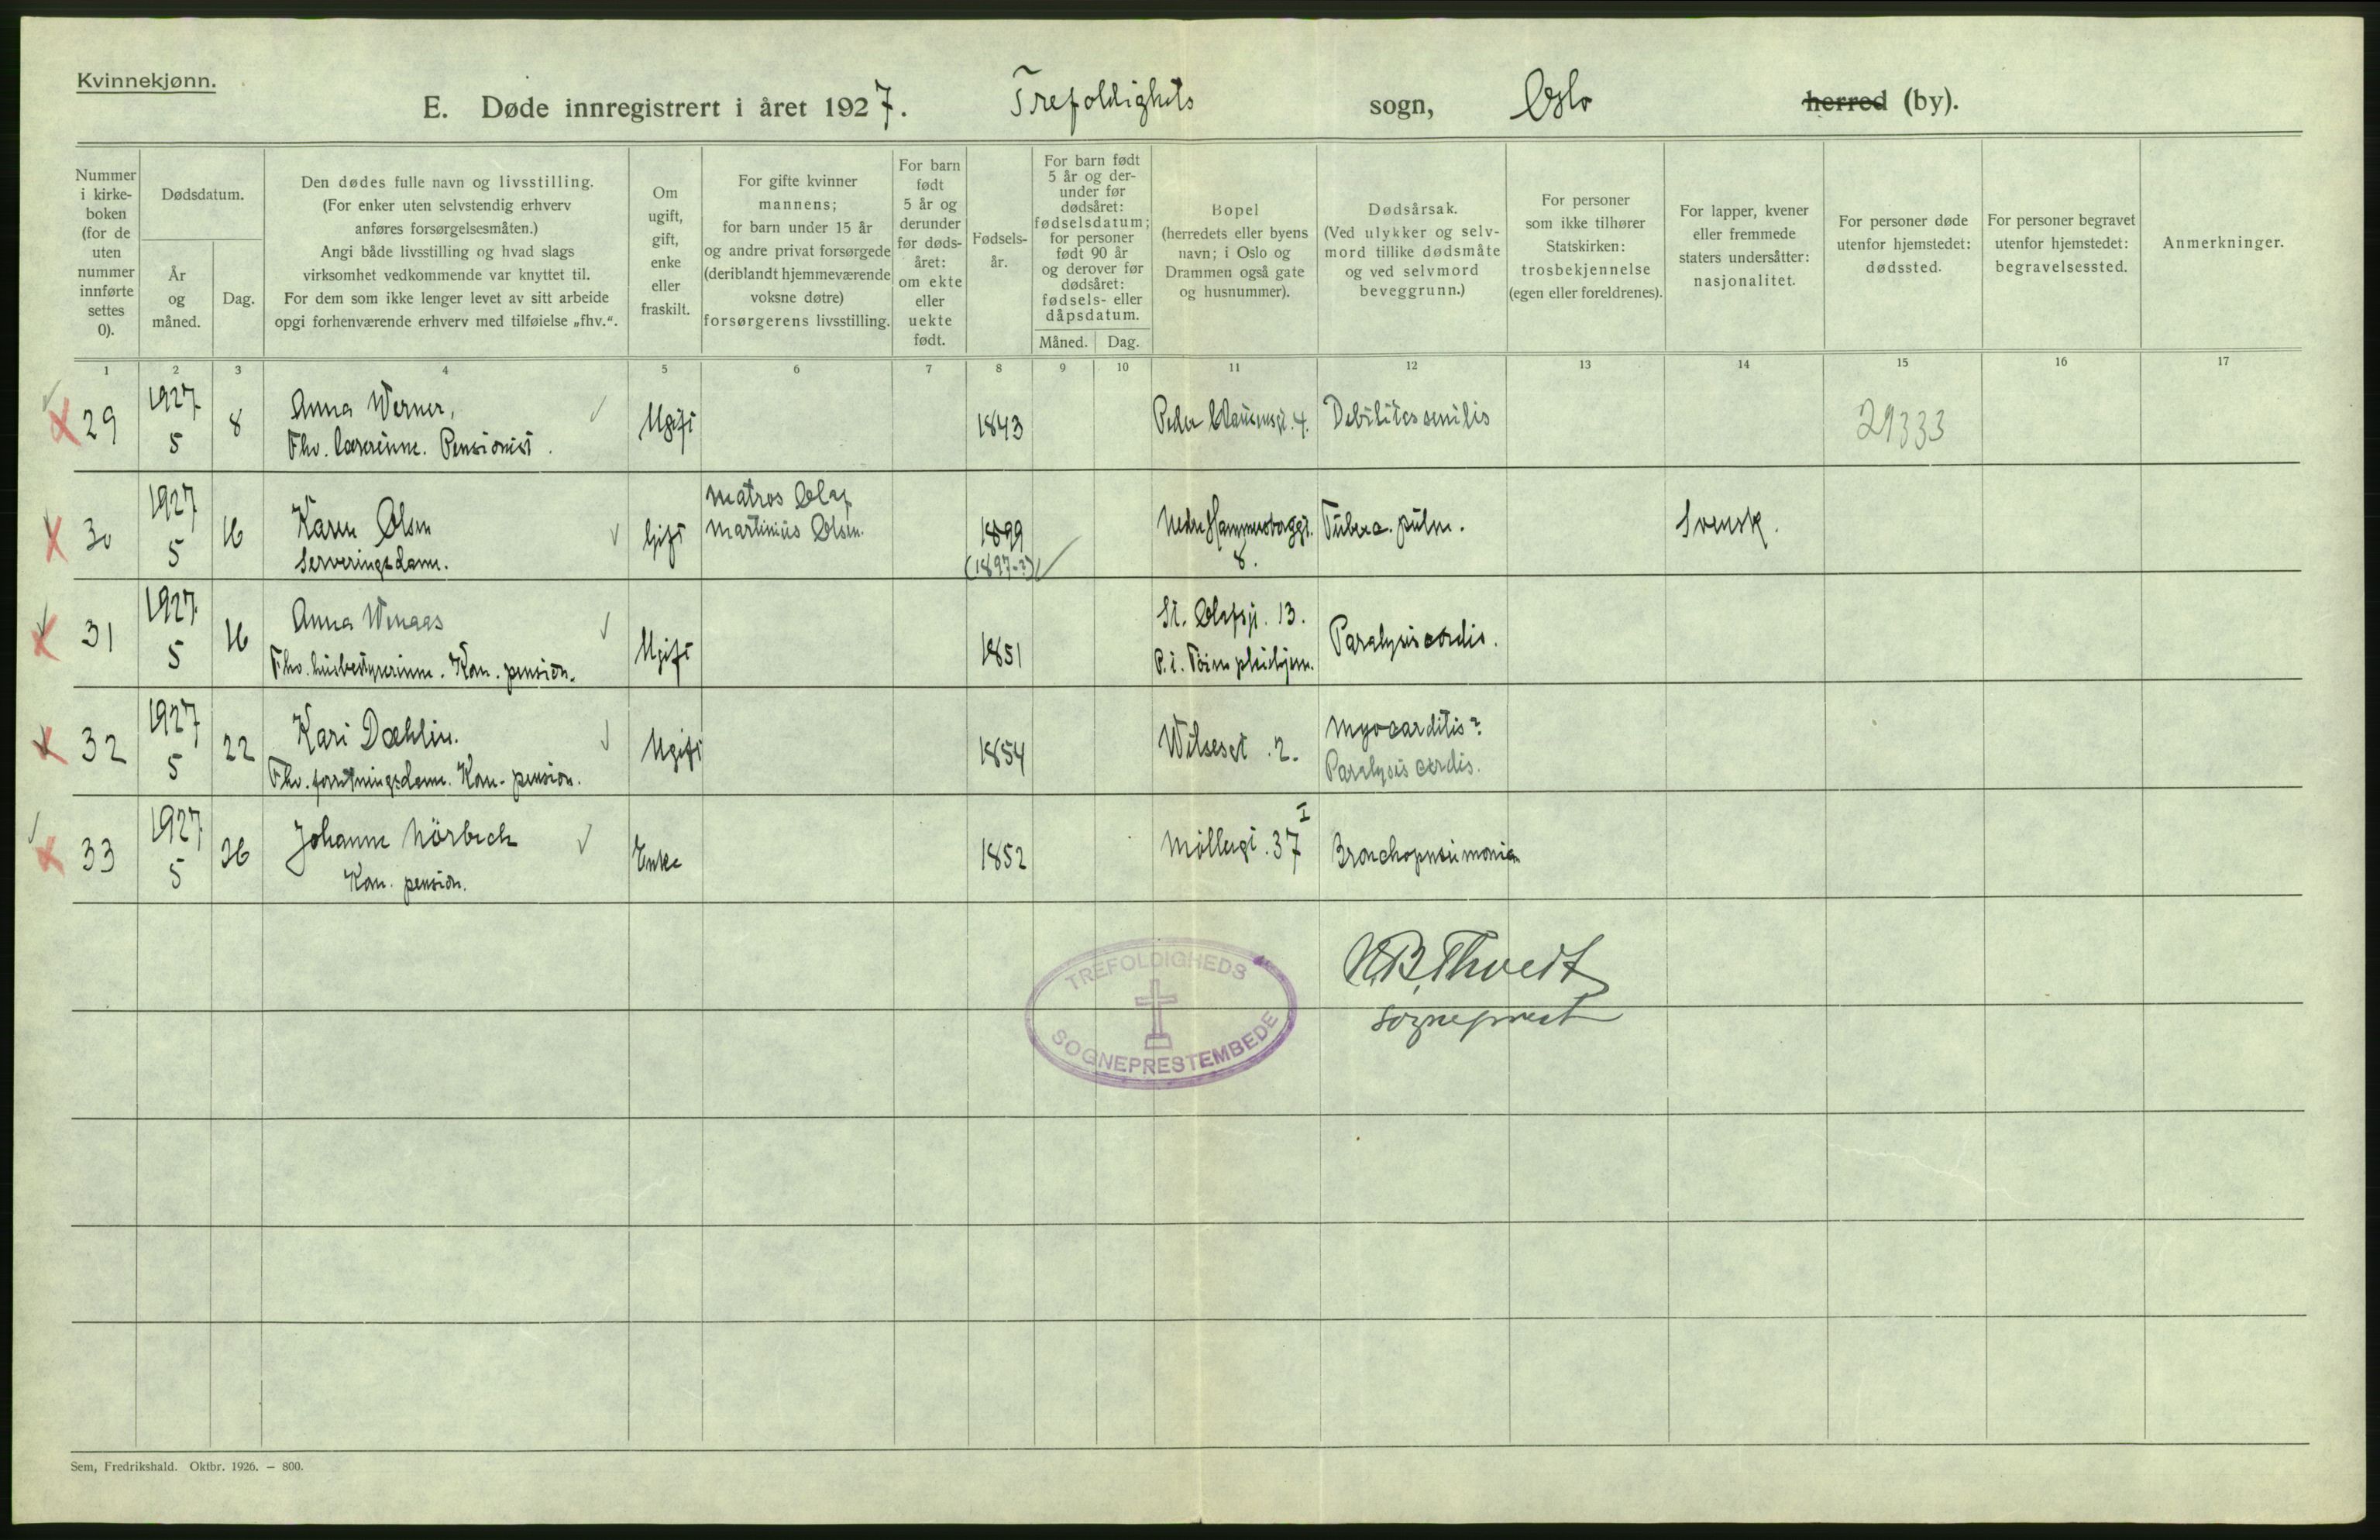 Kvinnekjønn.
E. Døde innregistrert i året 1927. Trefoldighets sogn, Oslo herred (by).
Nummer
i kirke-
boken
(for de
uten
nummer
innførte
settes
0).
Dødsdatum.
År
og
måned.
Dag.
Den dødes fulle navn og livsstilling.
(For enker uten selvstendig erhverv
anføres forsørgelsesmåten.)
Angi både livsstilling og hvad slags
virksomhet vedkommende var knyttet til.
For dem som ikke lenger levet av sitt arbeide
opgi forhenværende erhverv med tilføielse „fhv.“.
Om
ugift,
gift,
enke
eller
fraskilt.
For gifte kvinner
mannens;
for barn under 15 år
og andre privat forsørgede
(deriblandt hjemmeværende
voksne døtre)
forsørgerens livsstilling.
For barn
født
5 år og
derunder
før døds-
året:
om ekte
eller
uekte
født.
Fødsels-
år.
For barn født
5 år og der-
under før
dødsåret:
fødselsdatum;
for personer
født 90 år
og derover før
dødsåret:
fødsels- eller
dåpsdatum.
Måned. Dag.
Bopel
(herredets eller byens
navn; i Oslo og
Drammen også gate
og husnummer).
Dødsårsak.
(Ved ulykker og selv-
mord tillike dødsmåte
og ved selvmord
beveggrunn.)
For personer
som ikke tilhører
Statskirken:
trosbekjennelse
(egen eller foreldrenes).
For lapper, kvener
eller fremmede
staters undersåtter:
nasjonalitet.
For personer døde
utenfor hjemstedet:
dødssted.
For personer begravet
utenfor hjemstedet:
begravelsessted.
Anmerkninger.
1 2 3 4 5 6 7 8 9 10 11 12 13 14 15 16 17
29 1927 5 8 Anna Werner,
Fhv. lærerinne. Pensionist.
Ugift 1843 Peder Clausensgt. 4. Debilitas senilis 29333
30 1927 5 16 Karen Olsen
Serveringsdame.
Gift Matros Olaf
Martinius Olsen.
1899
(1897-?)
Nedre Hammersborggt.
8.
Tuberc. pulm. Svensk.
31 1927 5 16 Anna Wenaas
Fhv. husbestyrerinne. Kom. pension.
Ugift 1851 St. Olafsgt. 13.
P. t. Töien pleiehjem.
Paralysis cordis.
32 1927 5 22 Kari Dæhlin.
Fhv. forretningsdame. Kom. pension.
Ugift 1854 Wilsesgt. 2. Myocarditis?
Paralysis cordis.
33 1927 5 26 Johanne Nörbech
Kom. pension.
Enke 1852 Möllergt. 37 I Bronchopneumonia
TREFOLDIGHEDS
SOGNEPRESTEMBEDE
Thvedt
sogneprest
Sem, Fredrikshald. Oktbr. 1926. — 800.